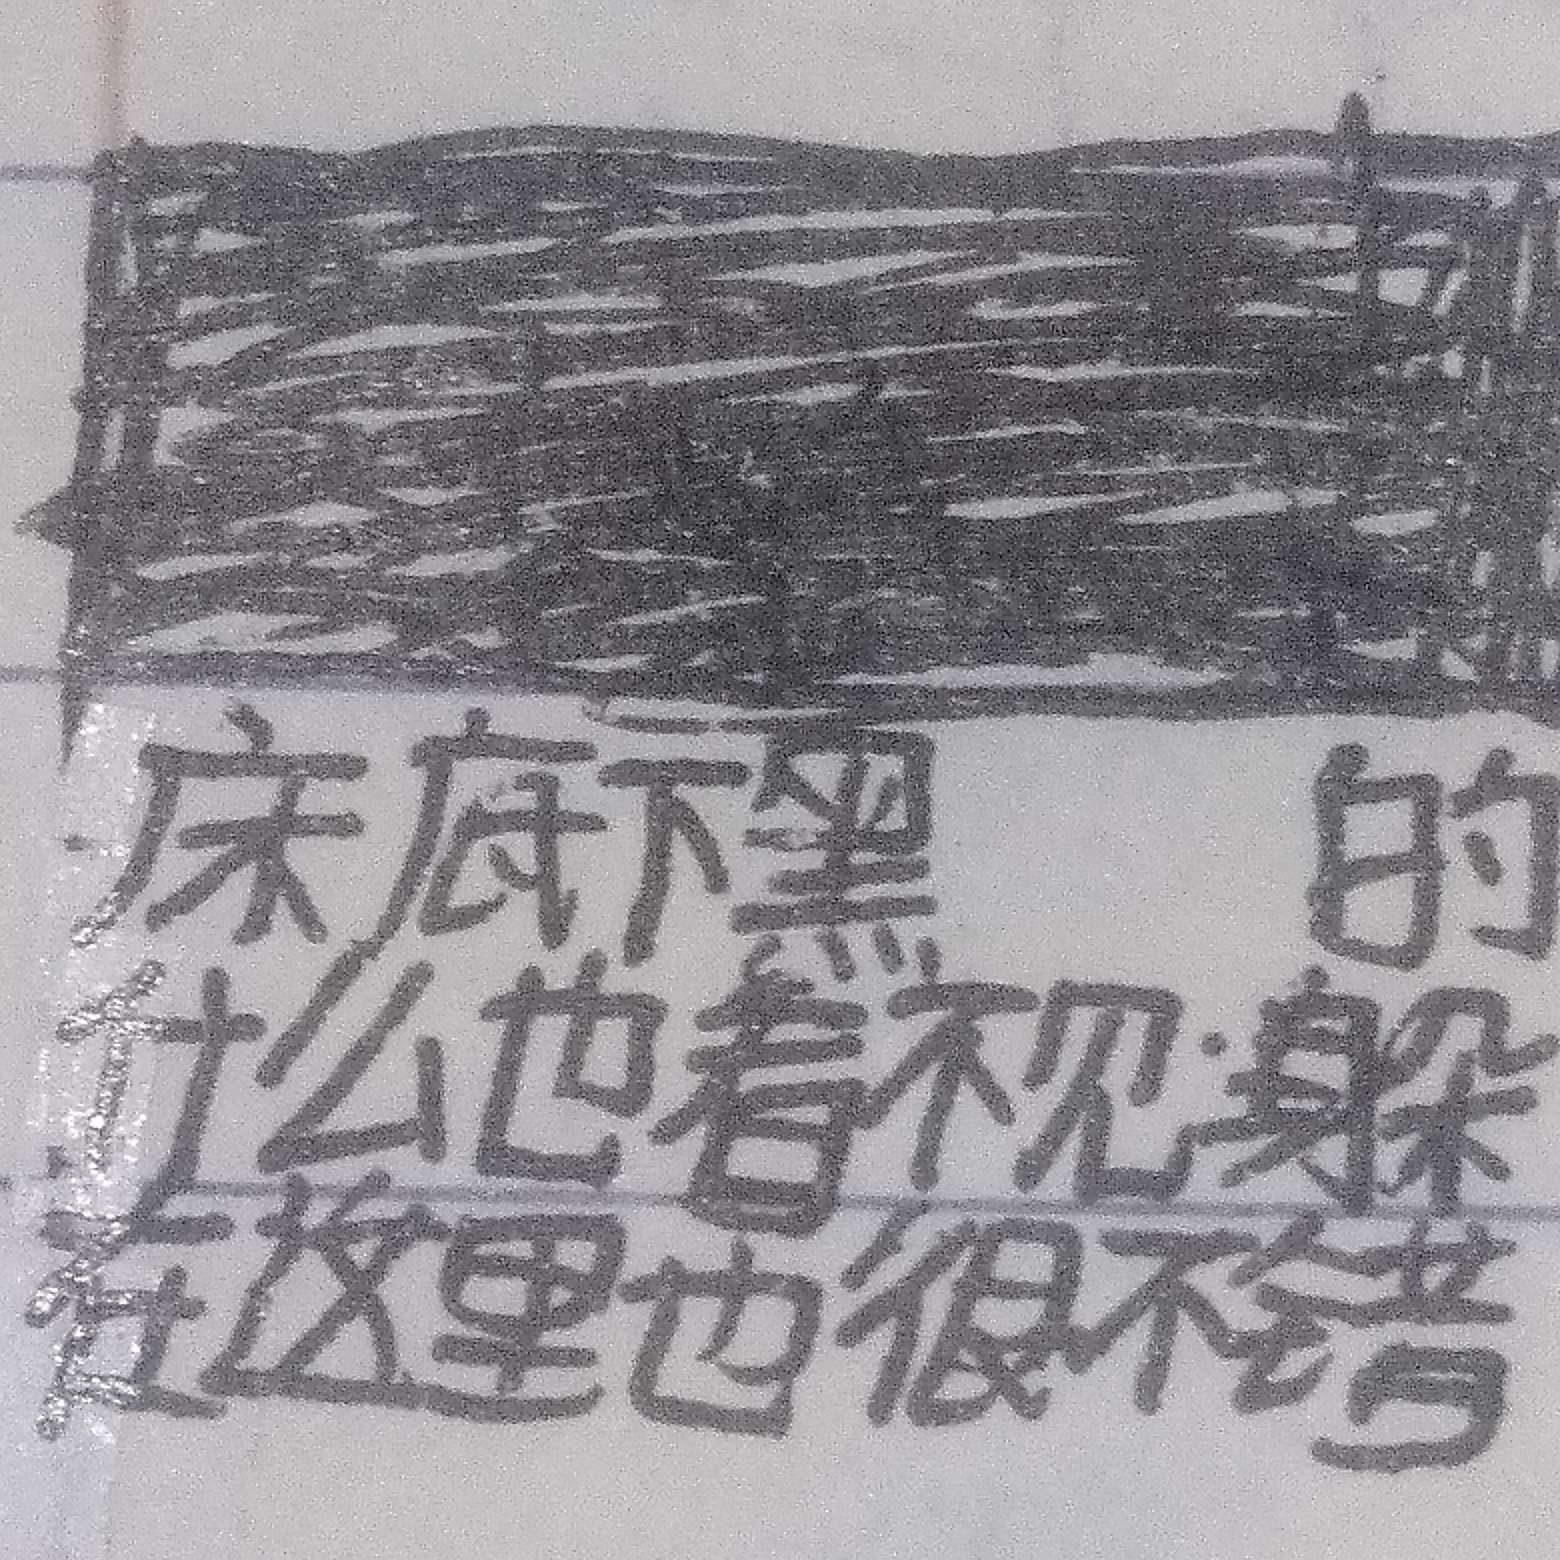 床底下黑 的
什么也看不见.躲
在这里也很不错